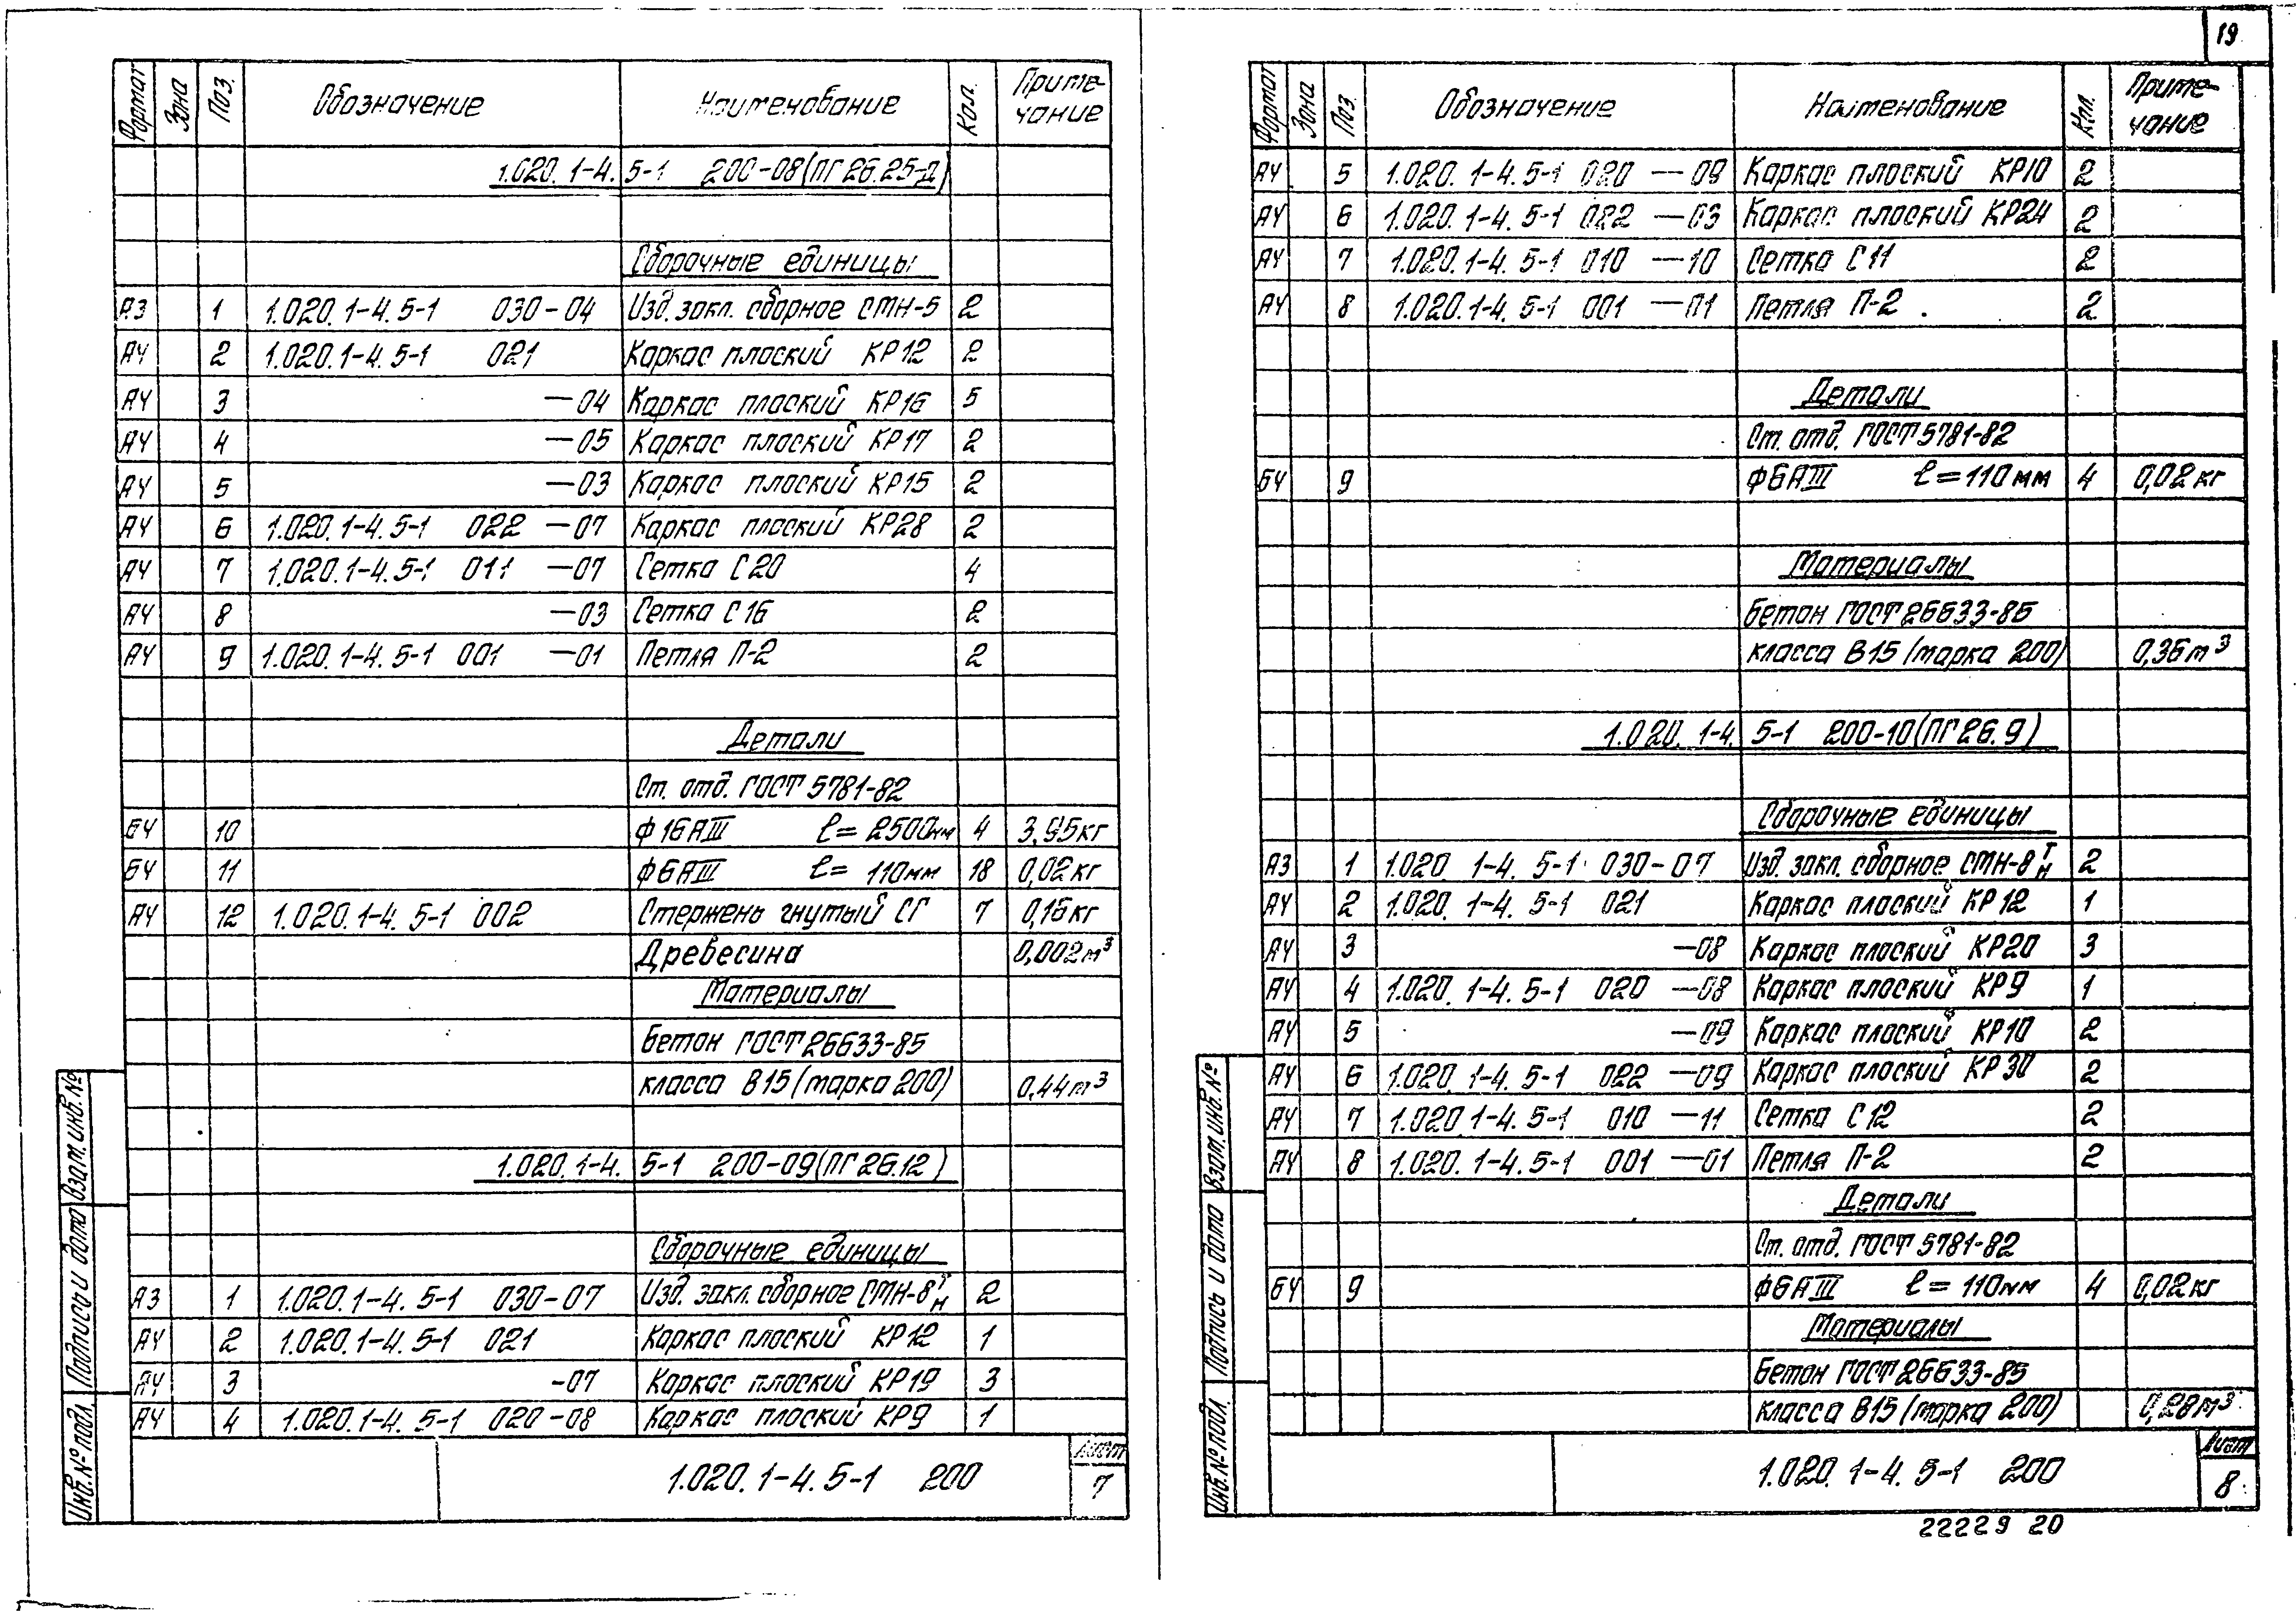 19
Формат Зона Поз. Обозначение Наименование Кол. Приме-чание
1.020.1-4.5-1 200-08(ПГ26.25-д)
Сборочные единицы
А3 1 1.020.1-4.5-1 030-04 Изд. закл. сборное СМН-5 2
А4 2 1.020.1-4.5-1 021 Каркас плоский КР12 2
А4 3 -04 Каркас плоский КР16 5
А4 4 -05 Каркас плоский КР17 2
А4 5 -03 Каркас плоский КР15 2
А4 6 1.020.1-4.5-1 022 -07 Каркас плоский КР28 2
А4 7 1.020.1-4.5-1 011 -07 Сетка С20 4
А4 8 -03 Сетка С16 2
А4 9 1.020.1-4.5-1 001 -01 Петля П-2 2
Детали
Ст. отд. ГОСТ 5781-82
БЧ 10 Ф16АIII ℓ= 2500мм 4 3,95кг
БЧ 11 Ф6АIII ℓ= 110мм 18 0,02кг
А4 12 1.020.1-4.5-1 002 Стержень гнутый СГ 7 0,16кг
Древесина 0,002м³
Материалы
Бетон ГОСТ 26633-85
класса В15 (марка 200) 0,44м³
1.020.1-4.5-1 200-09(ПГ26.12)
Сборочные единицы
А3 1 1.020.1-4.5-1 030-07 Изд. закл. сборное СМН-8 Т Н 2
А4 2 1.020.1-4.5-1 021 Каркас плоский КР12 1
А4 3 -07 Каркас плоский КР19 3
А4 4 1.020.1-4.5-1 020-08 Каркас плоский КР9 1
Инв. № подл. Подпись и дата Взам. инв. №
1.020.1-4.5-1 200
Лист
7
Формат Зона Поз. Обозначение Наименование Кол. Приме-чание
А4 5 1.020.1-4.5-1 020 -09 Каркас плоский КР10 2
А4 6 1.020.1-4.5-1 022 -03 Каркас плоский КР24 2
А4 7 1.020.1-4.5-1 010 -10 Сетка С11 2
А4 8 1.020.1-4.5-1 001 -01 Петля П-2 2
Детали
Ст. отд. ГОСТ 5781-82
БЧ 9 Ф6АIII ℓ=110мм 4 0,02кг
Материалы
Бетон ГОСТ 26633-85
класса В15 (марка 200) 0,36м³
1.020.1-4.5-1 200-10(ПГ26.9)
Сборочные единицы
А3 1 1.020.1-4.5-1 030-07 Изд. закл. сборное СМН-8 Т Н 2
А4 2 1.020.1-4.5-1 021 Каркас плоский КР12 1
А4 3 -08 Каркас плоский КР20 3
А4 4 1.020.1-4.5-1 020 -08 Каркас плоский КР9 1
А4 5 -09 Каркас плоский КР10 2
А4 6 1.020.1-4.5-1 022 -09 Каркас плоский КР30 2
А4 7 1.020.1-4.5-1 010 -11 Сетка С12 2
А4 8 1.020.1-4.5-1 001 -01 Петля П-2 2
Детали
Ст. отд. ГОСТ 5781-82
БЧ 9 Ф6АIII ℓ= 110мм 4 0,02кг
Материалы
Бетон ГОСТ 26633-85
класса В15 (марка 200) 0,28м³
Инв. № подл. Подпись и дата Взам. инв. №
1.020.1-4.5-1 200
Лист
8
22229 20